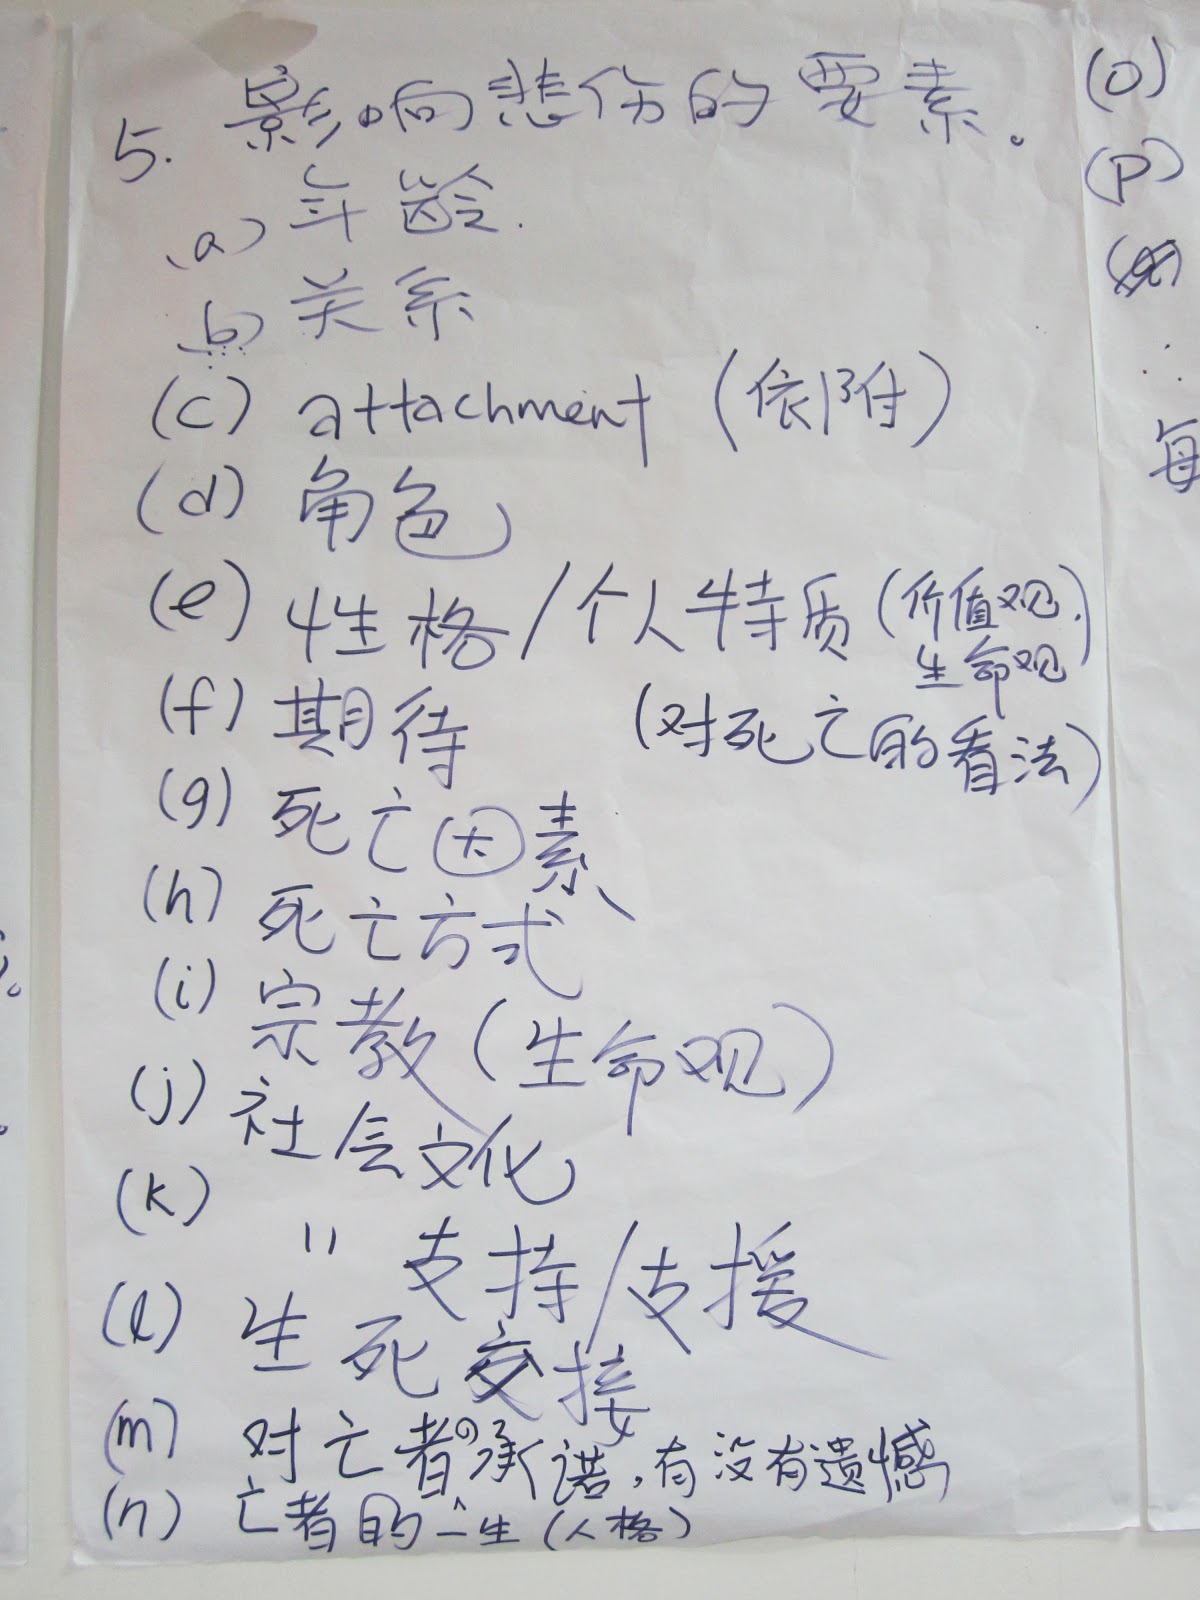 5. 影响悲伤的要素。
a) 年龄.
b) 关系
(c) attachment (依附)
(d) 角色
(e) 性格/个人特质 (价值观.
生命观)
(f) 期待 (对死亡的看法)
(g) 死亡因素
(h) 死亡方式
(i) 宗教 (生命观)
(j) 社会文化
(k) " 支持/支援
(l) 生死交接
(m) 对亡者の承诺,有没有遗憾
(n) 亡者的一生 (人格)
(o)
(p)
每